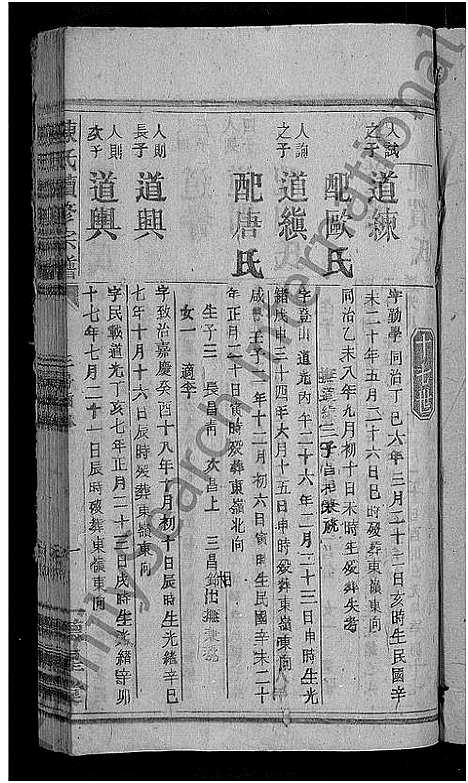 十七世
人誠之子 道練
字勤學同治丁巳六年三月二十二日亥時生民國辛
未二十年五月二十六日巳時歿葬東嶺東向
配歐氏
同治乙未八年九月初十日未時生歿葬失考
人論之子 道縝
字登山道光丙午二十六年二月二十三日申時生光
緒戊申三十四年六月十五日申時歿葬東嶺東向
配唐氏
咸豐壬子二年十二月初六日寅時生民國辛未二十
年正月二十日寅時歿葬東嶺北向
生子三 長昌南 次昌上 三昌
女一 適李
人則長子 道興
字致治嘉慶癸酉十八年十月初十日辰時生光緒辛巳
七年十月十六日辰時歿葬東嶺東向
人則次子 道輿
字民載道光丁亥七年正月二十三日戌時生光緒辛卯
十七年七月二十一日辰時歿葬東嶺東向
陳氏續修宗譜
德星堂
FamilySearch International